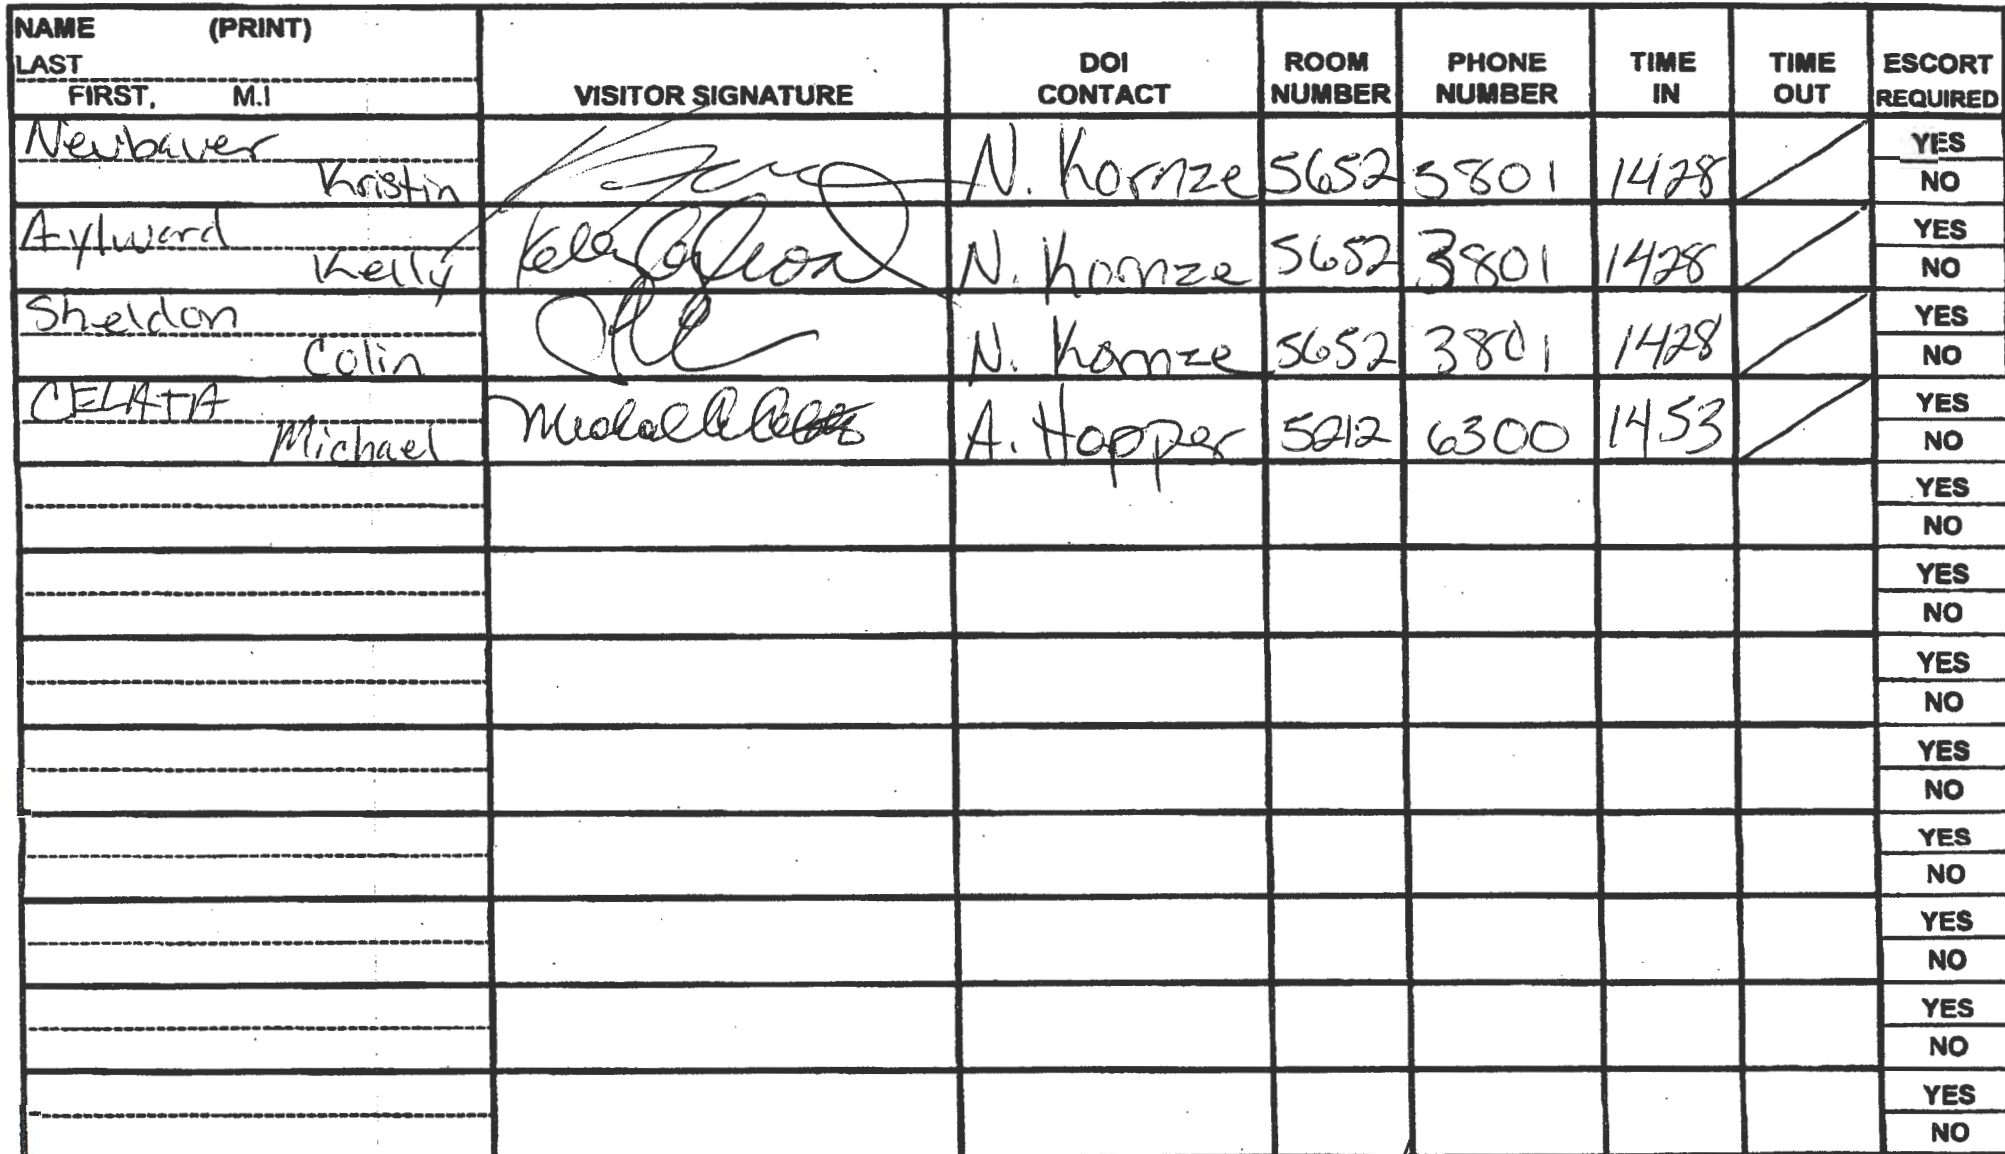 NAME (PRINT)
LAST
FIRST, M.I
VISITOR SIGNATURE
DOI CONTACT
ROOM NUMBER
PHONE NUMBER
TIME IN
TIME OUT
ESCORT REQUIRED
Neubauer
Kristin
N. Kornze 5652 3801 1428
YES
NO
Aylward
Kelly
N. Kornze 5652 3801 1428
YES
NO
Sheldon
Colin
N. Kornze 5652 3801 1428
YES
NO
CELATA
Michael
A. Hopper 5212 6300 1453
YES
NO
YES
NO
YES
NO
YES
NO
YES
NO
YES
NO
YES
NO
YES
NO
YES
NO